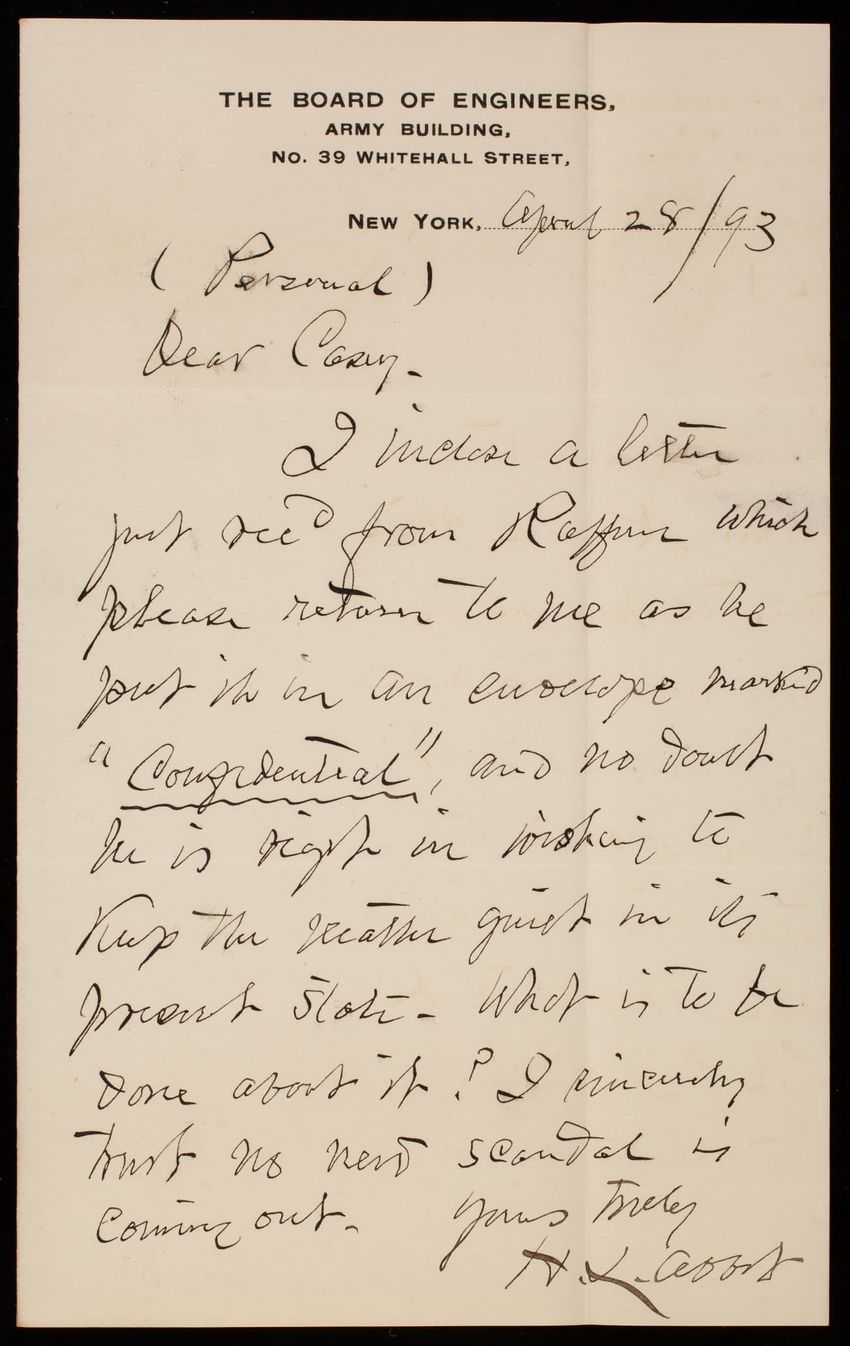 THE BOARD OF ENGINEERS,
ARMY BUILDING,
NO. 39 WHITEHALL STREET,
NEW YORK, April 28/93
(Personal)
Dear Casey-
I inclose a letter
just rec'd from which
please return to me as he
put it in an envelope marked
"Confidential", and no doubt
he is right in wishing to
keep the matter quiet in its
present state- What is to be
done about it? I sincerely
trust no new scandal is
coming out- Yours truly
H. L. Abbot